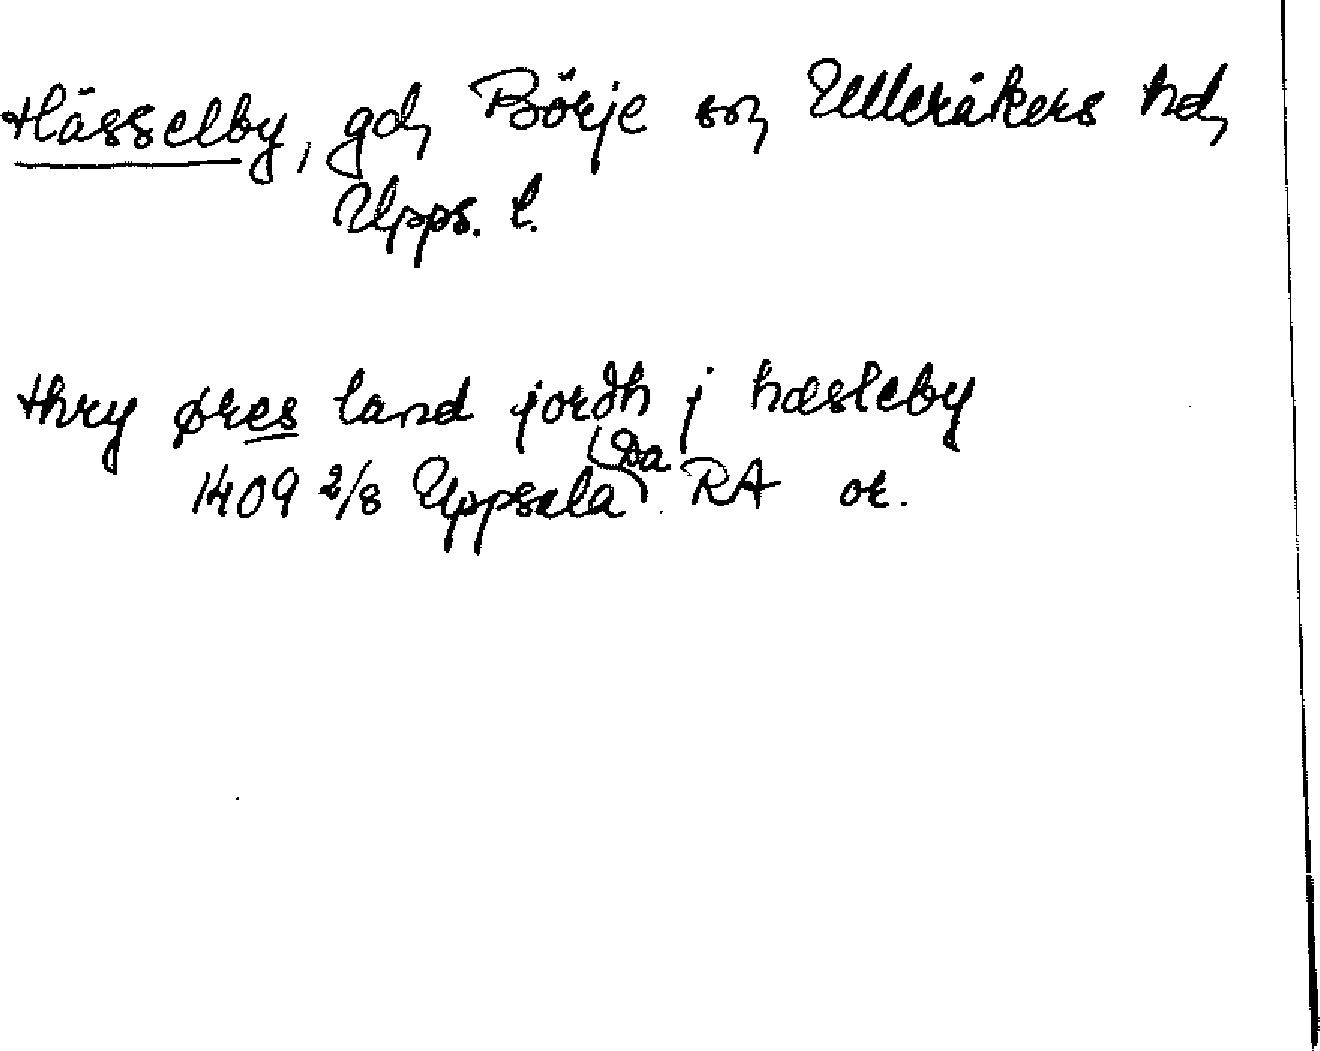 Hässelby, gd, Börje sn, Ulleråkers hd,
Upps. l.
thry øres land jordh j hæsleby
1409 2/8 Uppsala Da RA or.